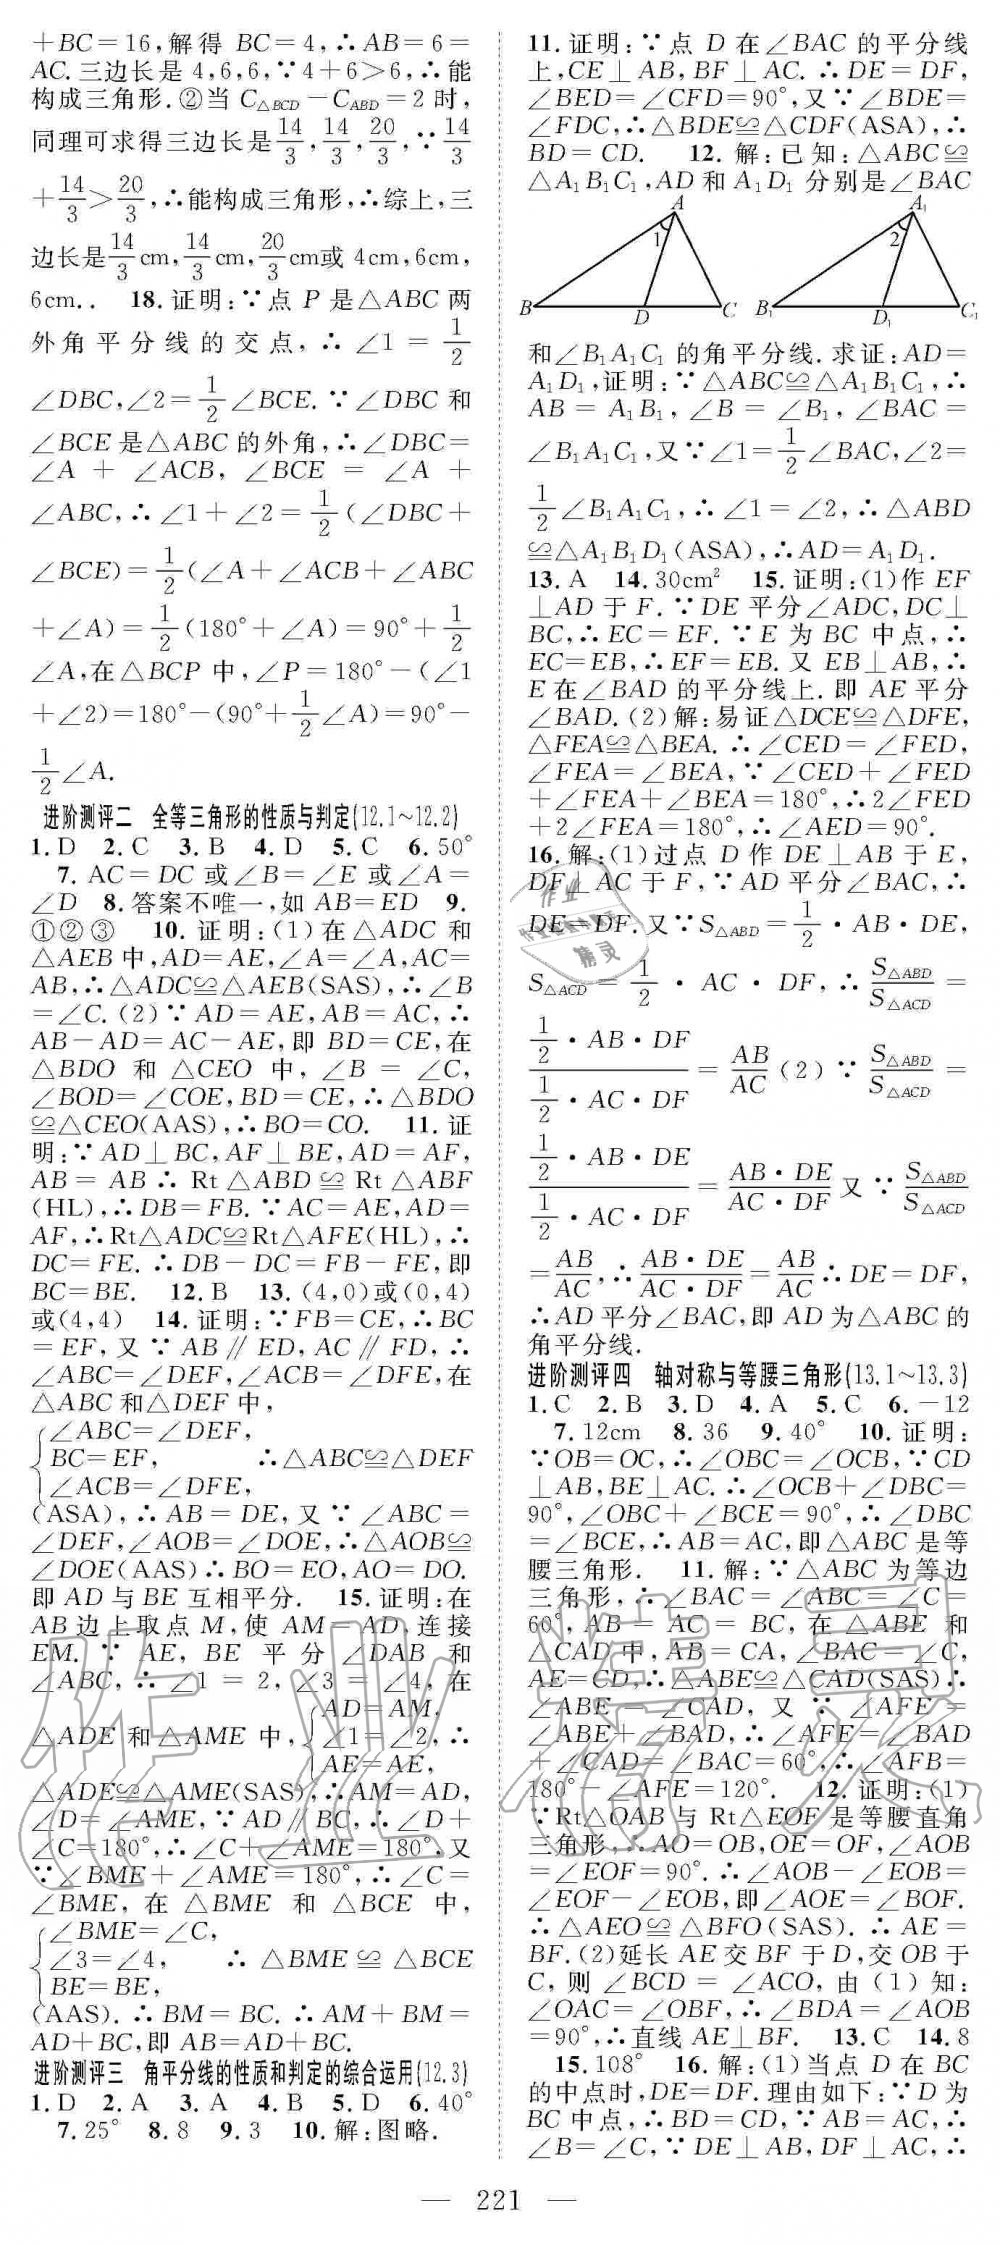 +BC=16,解得 BC=4,∴AB=6=
AC.三边长是 4,6,6,∵4+6>6,∴能
构成三角形.②当 C△BCD-CABD=2 时,
同理可求得三边长是14/3,14/3,20/3,∵14/3
+14/3>20/3,∴能构成三角形,∴综上,三
边长是14/3cm,14/3cm,20/3cm或 4cm,6cm,
6cm.. 18.证明:∵点 P 是△ABC 两
外角平分线的交点,∴∠1=1/2
∠DBC,∠2=1/2∠BCE.∵∠DBC 和
∠BCE 是△ABC 的外角,∴∠DBC=
∠A+∠ACB,∠BCE=∠A+
∠ABC,∴∠1+∠2=1/2(∠DBC+
∠BCE)=1/2(∠A+∠ACB+∠ABC
+∠A)=1/2(180°+∠A)=90°+1/2
∠A,在△BCP 中,∠P=180°-(∠1
+∠2)=180°-(90°+1/2∠A)=90°-
1/2∠A.
进阶测评二 全等三角形的性质与判定(12.1~12.2)
1.D 2.C 3.B 4.D 5.C 6.50°
7.AC=DC 或∠B=∠E 或∠A=
∠D 8.答案不唯一,如 AB=ED 9.
①②③ 10.证明:(1)在△ADC 和
△AEB 中,AD=AE,∠A=∠A,AC=
AB,∴△ADC≌△AEB(SAS),∴∠B
=∠C.(2)∵AD=AE,AB=AC,∴
AB-AD=AC-AE,即 BD=CE,在
△BDO 和 △CEO 中,∠B=∠C,
∠BOD=∠COE,BD=CE,∴△BDO
≌△CEO(AAS),∴BO=CO. 11.证
明:∵AD⊥BC,AF⊥BE,AD=AF,
AB=AB∴Rt△ABD≌Rt△ABF
(HL),∴DB=FB.∵AC=AE,AD=
AF,∴Rt△ADC≌Rt△AFE(HL),∴
DC=FE.∴DB-DC=FB-FE,即
BC=BE. 12.B 13.(4,0)或(0,4)
或(4,4) 14.证明:∵FB=CE,∴BC
=EF,又∵AB∥ED,AC∥FD,∴
∠ABC=∠DEF,∠ACB=∠DFE,在
△ABC 和△DEF 中,
∠ABC=∠DEF,
BC=EF, ∴△ABC≌△DEF
∠ACB=∠DFE,
(ASA),∴AB=DE,又∵∠ABC=
∠DEF,∠AOB=∠DOE,∴△AOB≌
∠DOE(AAS)∴BO=EO,AO=DO.
即 AD 与 BE 互相平分. 15.证明:在
AB 边上取点 M,使 AM=AD,连接
EM.∵AE,BE 平分∠DAB 和
∠ABC,∴∠1=2,∠3=∠4,在
AD=AM,
△ADE 和△AME 中,∠1=∠2,∴
AE=AE,
△ADE≌△AME(SAS),∴AM=AD,
∠D=∠AME,∵AD∥BC,∴∠D+
∠C=180°,∴∠C+∠AME=180°,又
∵∠BME+∠AME=180°,∴∠C=
∠BME,在 △BME 和 △BCE 中,
∠BME=∠C,
∠3=∠4, ∴△BME≌△BCE
BE=BE,
(AAS).∴BM=BC.∴AM+BM=
AD+BC,即 AB=AD+BC.
进阶测评三 角平分线的性质和判定的综合运用(12.3)
1.D 2.A 3.A 4.B 5.D 6.40°
7.25° 8.8 9.3 10.解:图略.
11.证明:∵点 D 在∠BAC 的平分线
上,CE⊥AB,BF⊥AC.∴DE=DF,
∠BED=∠CFD=90°,又∵∠BDE=
∠FDC,∴△BDE≌△CDF(ASA),∴
BD=CD. 12.解:已知:△ABC≌
△A₁B₁C₁,AD 和 A₁D₁ 分别是∠BAC
A 1 B D C A₁ 2 B₁ D₁ C₁
和∠B₁A₁C₁ 的角平分线.求证:AD=
A₁D₁,证明:∵△ABC≌△A₁B₁C₁,∴
AB=A₁B₁,∠B=∠B₁,∠BAC=
∠B₁A₁C₁,又∵∠1=1/2∠BAC,∠2=
1/2∠B₁A₁C₁,∴∠1=∠2,∴△ABD
≌△A₁B₁D₁(ASA),∴AD=A₁D₁.
13.A 14.30cm² 15.证明:(1)作 EF
⊥AD 于 F.∵DE 平分∠ADC,DC⊥
BC,∴EC=EF.∵E 为 BC 中点,∴
EC=EB,∴EF=EB.又 EB⊥AB,∴
E 在∠BAD 的平分线上.即 AE 平分
∠BAD.(2)解:易证△DCE≌△DFE,
△FEA≌△BEA.∴∠CED=∠FED,
∠FEA=∠BEA,∵∠CED+∠FED
+∠FEA+∠BEA=180°,∴2∠FED
+2∠FEA=180°,∴∠AED=90°.
16.解:(1)过点 D 作 DE⊥AB 于 E,
DF⊥AC 于 F,∵AD 平分∠BAC,∴
DE=DF.又∵S△ABD=1/2·AB·DE,
S△ACD=1/2·AC·DF,∴S△ABD/S△ACD=
(1/2·AB·DF)/(1/2·AC·DF)=AB/AC(2)∵S△ABD/S△ACD=
(1/2·AB·DE)/(1/2·AC·DF)=(AB·DE)/(AC·DF)又∵S△ABD/S△ACD
=AB/AC,∴(AB·DE)/(AC·DF)=AB/AC∴DE=DF,
∴AD 平分∠BAC,即 AD 为△ABC 的
角平分线.
进阶测评四 轴对称与等腰三角形(13.1~13.3)
1.C 2.B 3.D 4.A 5.C 6.-12
7.12cm 8.36 9.40° 10.证明:
∵OB=OC,∴∠OBC=∠OCB,∵CD
⊥AB,BE⊥AC.∴∠OCB+∠DBC=
90°,∠OBC+∠BCE=90°,∴∠DBC
=∠BCE,∴AB=AC,即△ABC 是等
腰三角形. 11.解:∵△ABC 为等边
三角形,∴∠BAC=∠ABC=∠C=
60°,AB=AC=BC,在△ABE 和
△CAD 中,AB=CA,∠BAC=∠C,
AE=CD,∴△ABE≌△CAD(SAS)∴
∠ABE=∠CAD,又∵∠AFE=
∠ABE+∠BAD,∴∠AFE=∠BAD
+∠CAD=∠BAC=60°,∴∠AFB=
180°-∠AFE=120°. 12.证明:(1)
∵Rt△OAB 与 Rt△EOF 是等腰直角
三角形,∴AO=OB,OE=OF,∠AOB
=∠EOF=90°.∴∠AOB-∠EOB=
∠EOF-∠EOB,即∠AOE=∠BOF.
∴△AEO≌△BFO(SAS).∴AE=
BF.(2)延长 AE 交 BF 于 D,交 OB 于
C,则∠BCD=∠ACO,由(1)知:
∠OAC=∠OBF,∴∠BDA=∠AOB
=90°,∴直线 AE⊥BF. 13.C 14.8
15.108° 16.解:(1)当点 D 在 BC
的中点时,DE=DF.理由如下:∵D 为
BC 中点,∴BD=CD,∵AB=AC,∴
∠B=∠C,∵DE⊥AB,DF⊥AC,∴
— 221 —
作业精灵